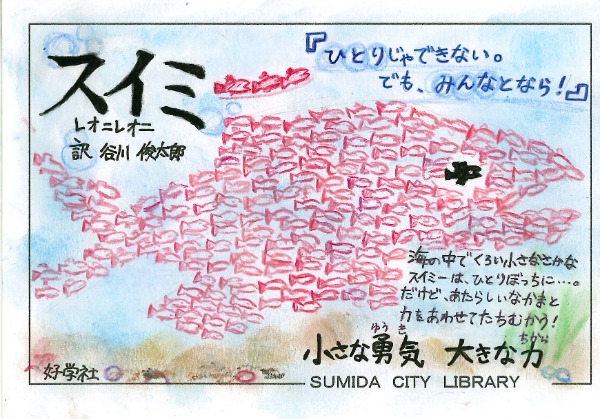 スイミー
『ひとりじゃできない。
でも、みんなとなら!』
レオニレオニ
訳 谷川 俊太郎
海の中でくろい小さなさかな
スイミーは、ひとりぼっちに…。
だけど、あたらしいなかまと
力をあわせてたちむかう!
小さな勇気 大きな力
ゆうき ちから
好学社
SUMIDA CITY LIBRARY